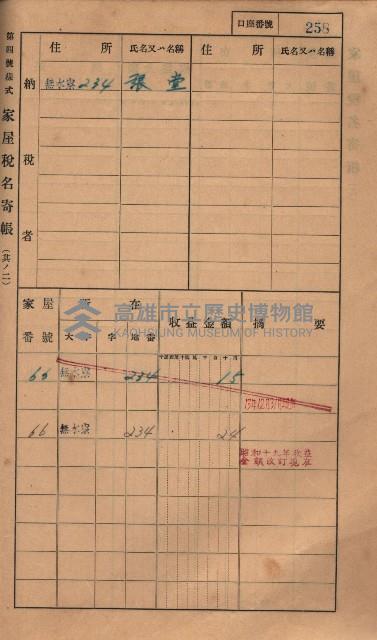 口座番號 258
第四號樣式 家屋稅名寄帳 (其ノ二)
納稅者
住所 氏名又ハ名稱 住所 氏名又ハ名稱
無水寮234 張堂
家屋番號 所在 收益金額 摘要
大字 字 地番
高雄市立歷史博物館
KAOHSIUNG MUSEUM OF HISTORY
66 無水寮 234 15
66 無水寮 234 24
昭和十九年收益
金額改訂現在